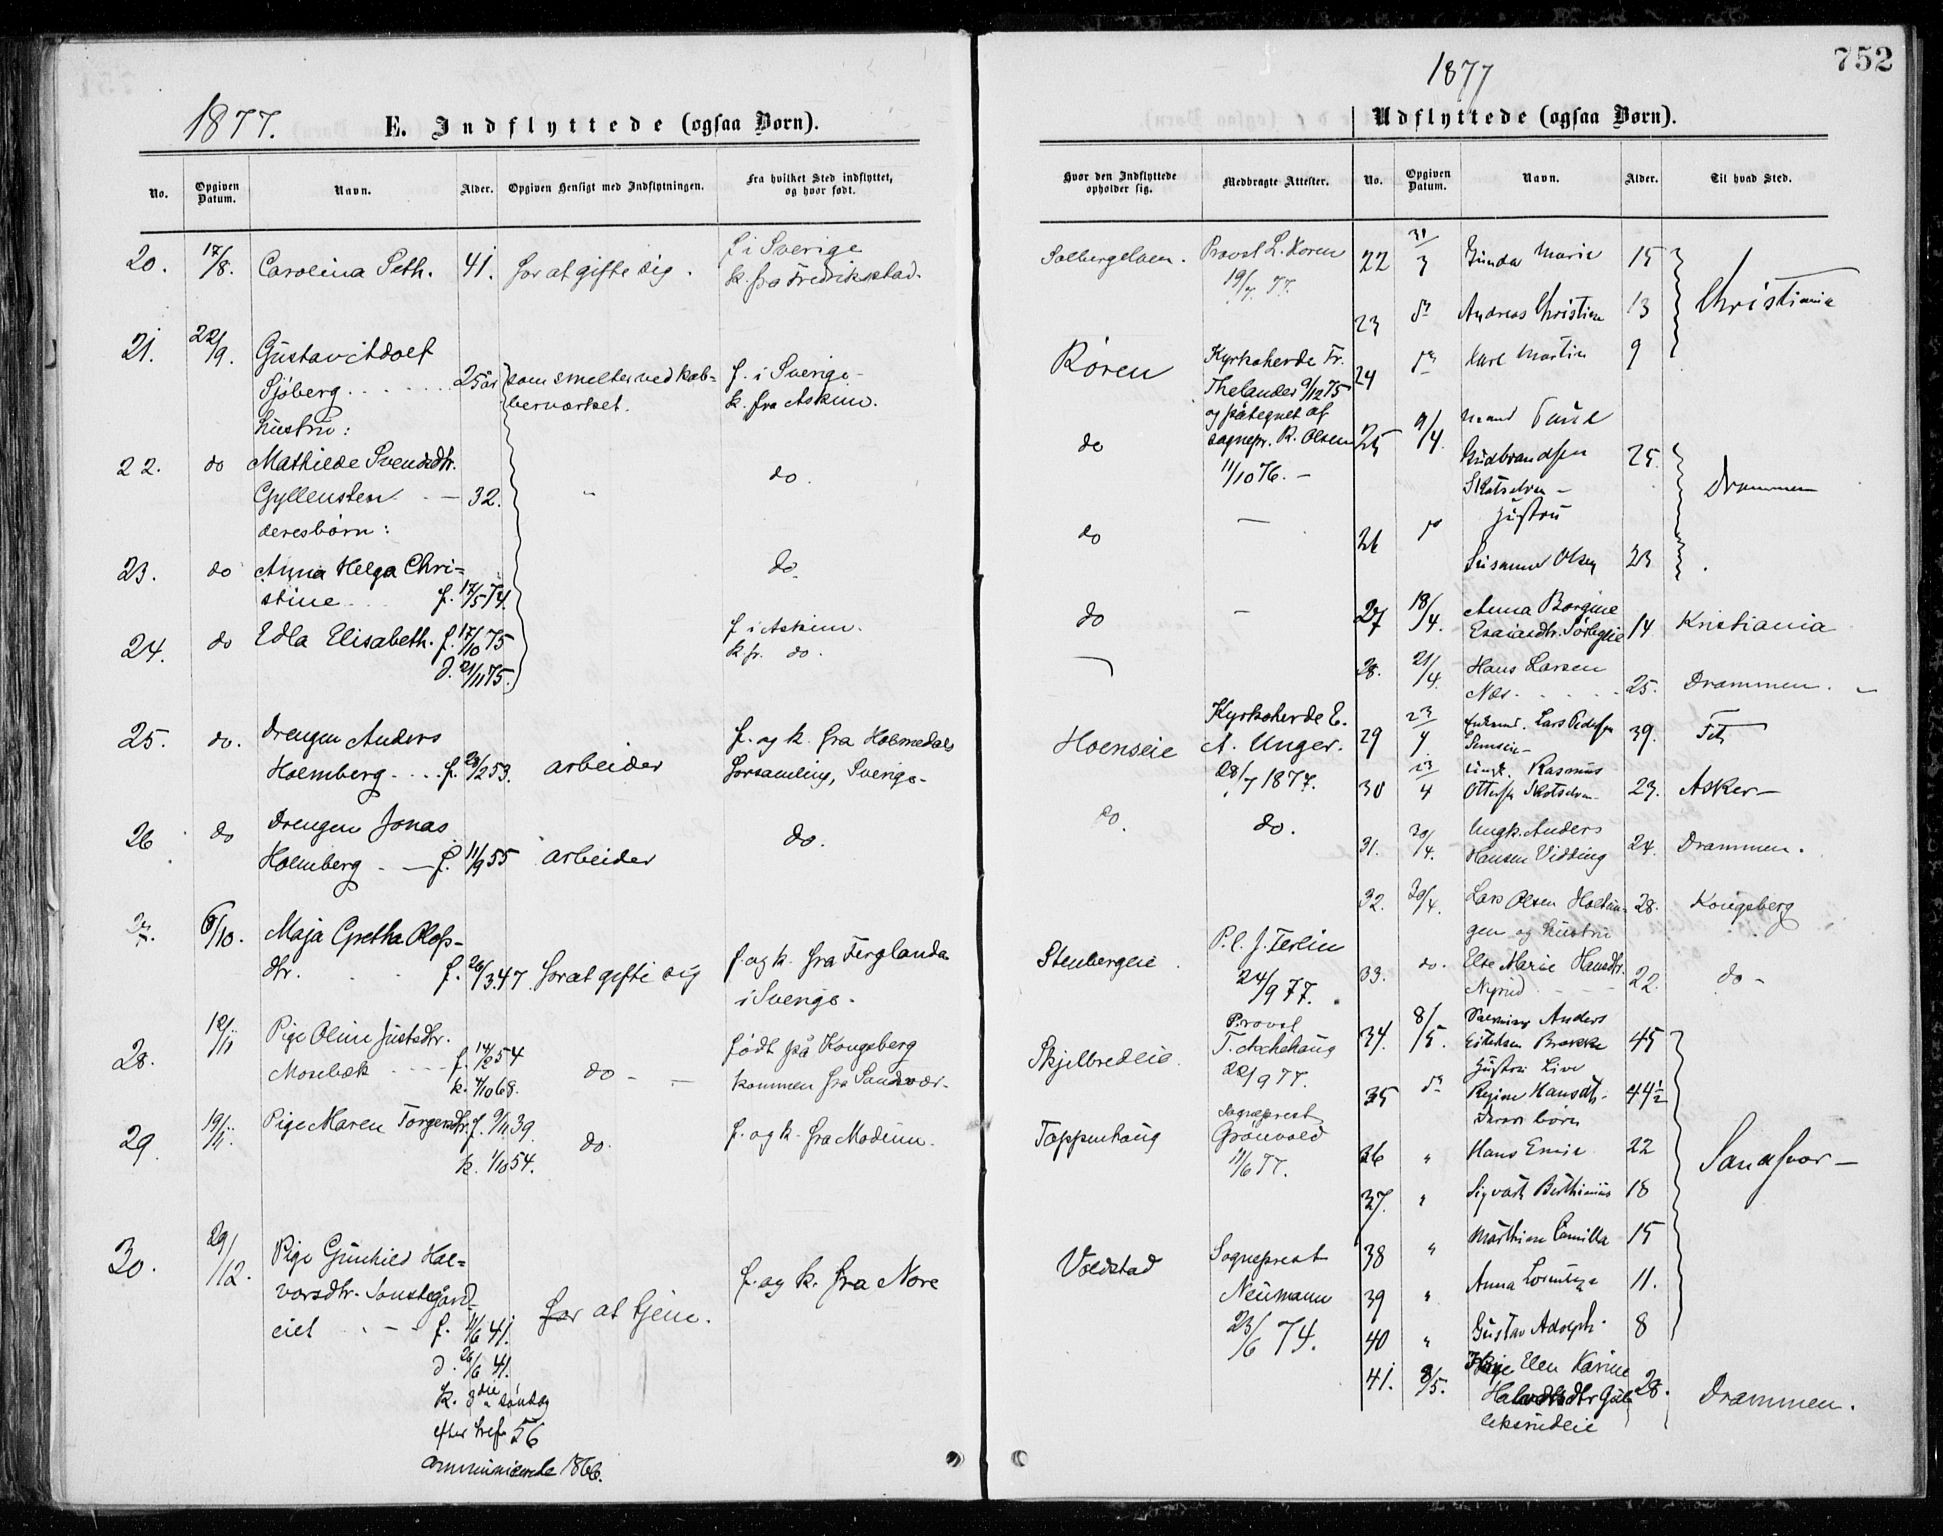 752
1877.
E. Indflyttede (ogsaa Børn).
No.
Opgiven Datum.
Navn.
Alder.
Opgiven Hensigt med Indflytningen.
Fra hvilket Sted indflyttet, og hvor født.
20. 17/8. Carolina Seth. 41. for at gifte sig. f. i Sverige
k. fra Fredrikstad.
21. 22/9. Gustav Adolf
Sjöberg 25 år som smelter ved kob- f. i Sverige
berværket. k. fra Askim.
hustru:
22. do Mathilde Svendsdtr.
Gyllensten 32. " do.
deres børn:
23. do Anna Helga Chri= do.
stine f. 17/5 74.
24. do Edla Elisabeth. f. 17/10 75 f. i Askim.
d. 21/11 75. k. fr. do.
25. do. Drengen Anders f. og k. fra Holmedals
Holmberg f. 23/2 53. arbeider forsamling, Sverige.
26 do Drengen Jonas do.
Holmberg f. 11/9 55 arbeider
27. 6/10. Maja Gretha Olofs-
dtr. f. 26/3 47 for at gifte sig f. og k. fra Ferglanda
i Sverige.
28. 12/11 Pige Oline Justsdtr. født på Kongsberg
Mosebæk f. 14/2 54 do kommen fra Sandsvær.
k. 4/10 68.
29. 19/11. Pige Maren Torgersdtr. f. 9/11 39. do. f. og k. fra Modum.
k. 1/10 54.
30. 29/12. Pige Gunhild Hal=
vorsdtr. f. og k. fra Nore
eiet f. 11/6 41. for at tjene.
d. 26/6 41.
k. søndag
efter tref. 56
communicerede 1866.
1877
Udflyttede (ogsaa Børn).
Hvor den Indflyttede opholder sig.
Medbragte Attester.
No.
Opgiven Datum.
Navn.
Alder.
Til hvad Sted.
Solbergelven. Provst L. Koren
19/7. 77.
Røren Kyrkoherde Fr.
Thelander 9/12 75
og påtegnet af
do sognepr. R. Olsen
11/10 76. —
do —
do —
Hoenseie Kyrkoherde E.
A. Unger.
28/7 1877.
do. do.
Stenbergeie. P. l. J. Terlin
24/9 77.
Skjelbredeie Provst
T. Aschehoug
22/9 77.
Toppenhoug Sogneprest
Grönvold
11/6 77.
Voldstad Sogneprest
Neumann
23/6 74.
22 31/3 Gunda Marie 15
23 do Andreas Christian 13 Christiania
24 do Karl Martin 9
25 9/4. Mand
Gudbrandsen 25. Drammen
Skotselven
26 do Hustru
Susanne Olsen 23
27 18/4. Anna Borgine
Esaiasdtr. 14 Kristiania
28. 21/4. Hans Larsen
Næs 25. Drammen.
29 23/4 Lars Pedersen 39. Fet
30 23/4 Rasmus
Ottersen Skotselven 23. Asker
31. 30/4. Ungk. Anders
Hansen Vidding 24. Drammen.
32. 30/4. Lars Olsen 28. Kongsberg
gen og hustru
33. do. Else Marie Hansdtr.
Nyrud 22. do
34. 8/5. Anders
Brekke 45
Hustru Live
35 do Regine Hansdtr. 44½
Deres børn
36 " Hans Emil 22 Sandsvær
37. " Sigvart Berthinius 18
38 " Marthine Camilla 15
39 " Anna 11.
40 " Gustav Adolph 8
41. 8/5. Pige Elen Karine
28. Drammen.